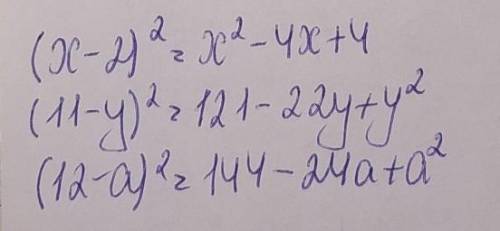 (x-2)² = x² - 4x + 4
(11-y)² = 121 - 22y + y²
(12-a)² = 144 - 24a + a²